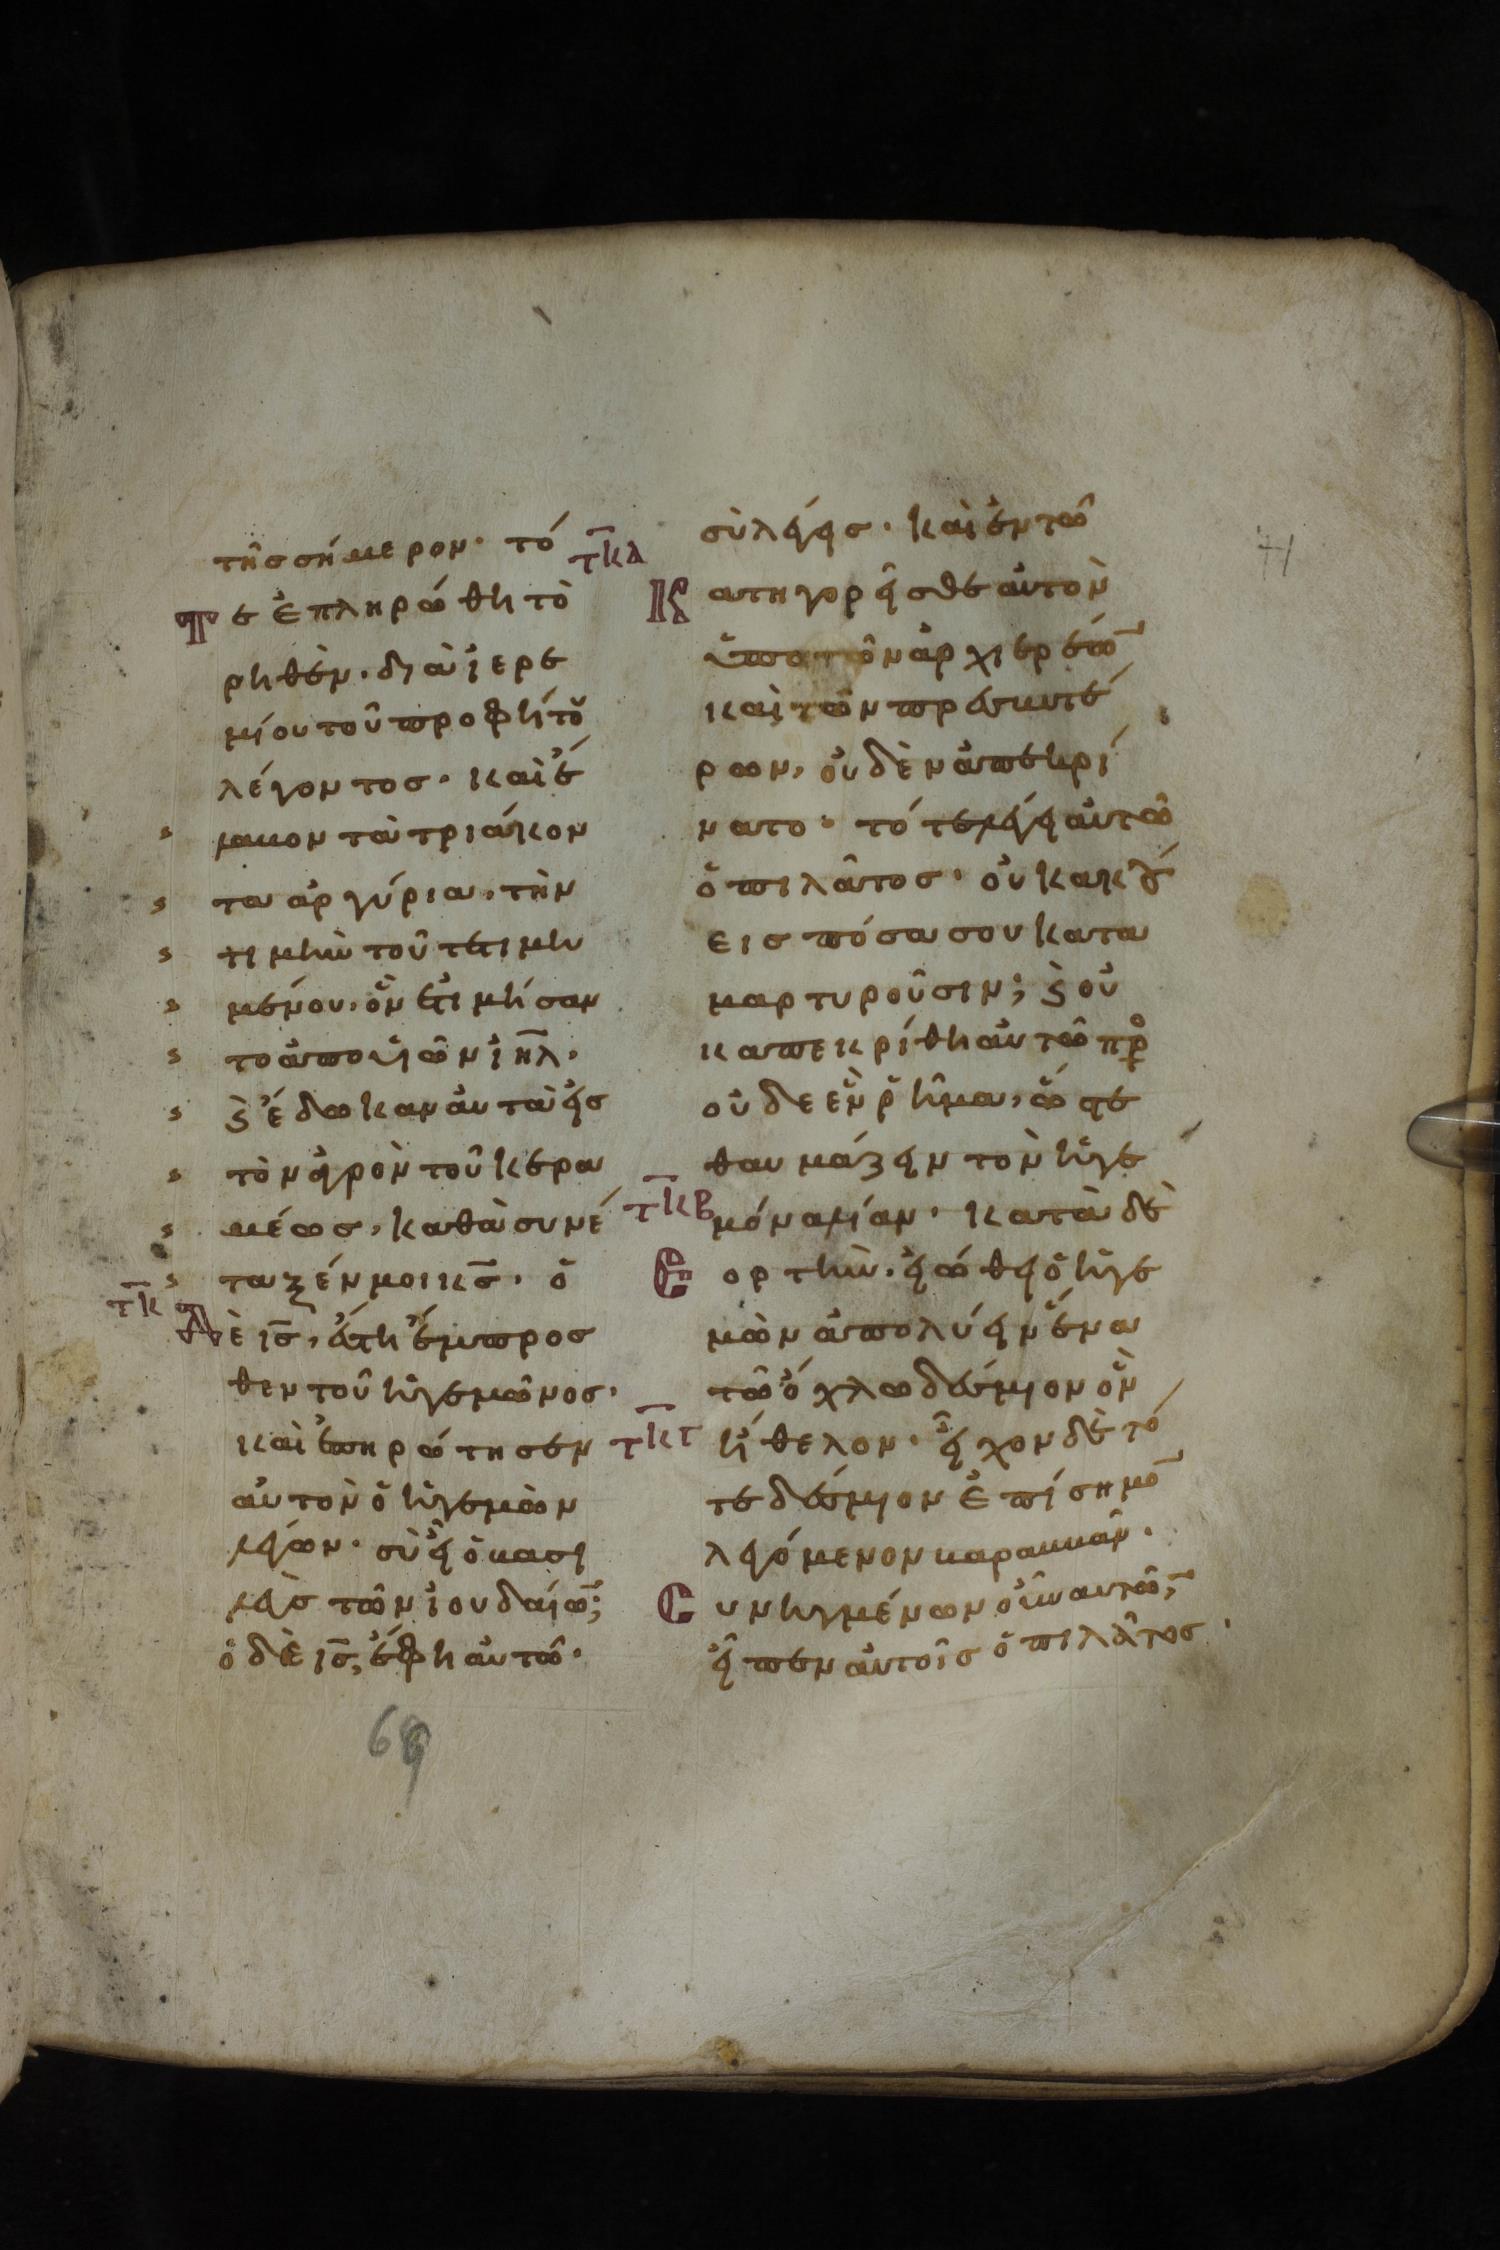 τῆς σήμερον· τό
τε ἐπληρώθη τὸ
ρηθὲν· διὰ ἱερε
μίου τοῦ προφήτου
λέγοντος· καὶ ἔ
λαβον τὰ τριάκον
τα ἀργύρια, τὴν
τιμὴν τοῦ τετιμη
μένου, ὃν ἐτιμήσαν
το ἀπο υἱῶν ιη̅λ,
ϗ ἔδωκαν αὐτὰ εἰς
τὸν ἀγρὸν τοῦ κερα
μέως, καθὰ συνέ
ταξέν μοι κ̅ς̅· ὁ
τκ
δὲ ι̅ς̅, ἔστη ἔμπροσ
θεν τοῦ ἡγεμῶνος·
καὶ ἐπηρώτησεν
αὐτὸν ὁ ἡγεμὼν
λέγων· σὺ εἶ ὁ βασι
λεὺς τῶν ἰουδαίω̅;
ὁ δὲ ι̅ς̅, ἔφη αὐτῶ·
τκα
σὺ λέγεις· καὶ ἐν τῶ
κατηγορεῖσθε αὐτὸν
ὑπο τῶν ἀρχιερέω̅
καὶ τῶν πρεσβυτέ
ρων, οὐδὲν ἀπεκρί
νατο· τότε λέγει αὐτῶ
ὁ πιλᾶτος· οὐκ ἀκού
εις πόσα σου κατα
μαρτυροῦσιν; ϗ οὐ
κ απεκρίθη αὐτῶ πρ
οὐδε ἓν ῥῆμα, ὥστε
θαυμάζειν τὸν ἡγε
τκβ
μόνα λίαν· κατὰ δὲ
ἑορτὴν, εἰώθει ὁ ἡγε
μὼν ἀπολύειν ἕνα
τῶ ὄχλω δέσμιον ὃν
τκγ
ἤθελον· εἶχον δὲ τό
τε δέσμιον ἐπίσημο̅
λεγόμενον βαραββᾶν·
Συνηγμένων οὖν αὐτῶ̅,
εἶπεν αὐτοῖς ὁ πιλᾶτος·
71
69